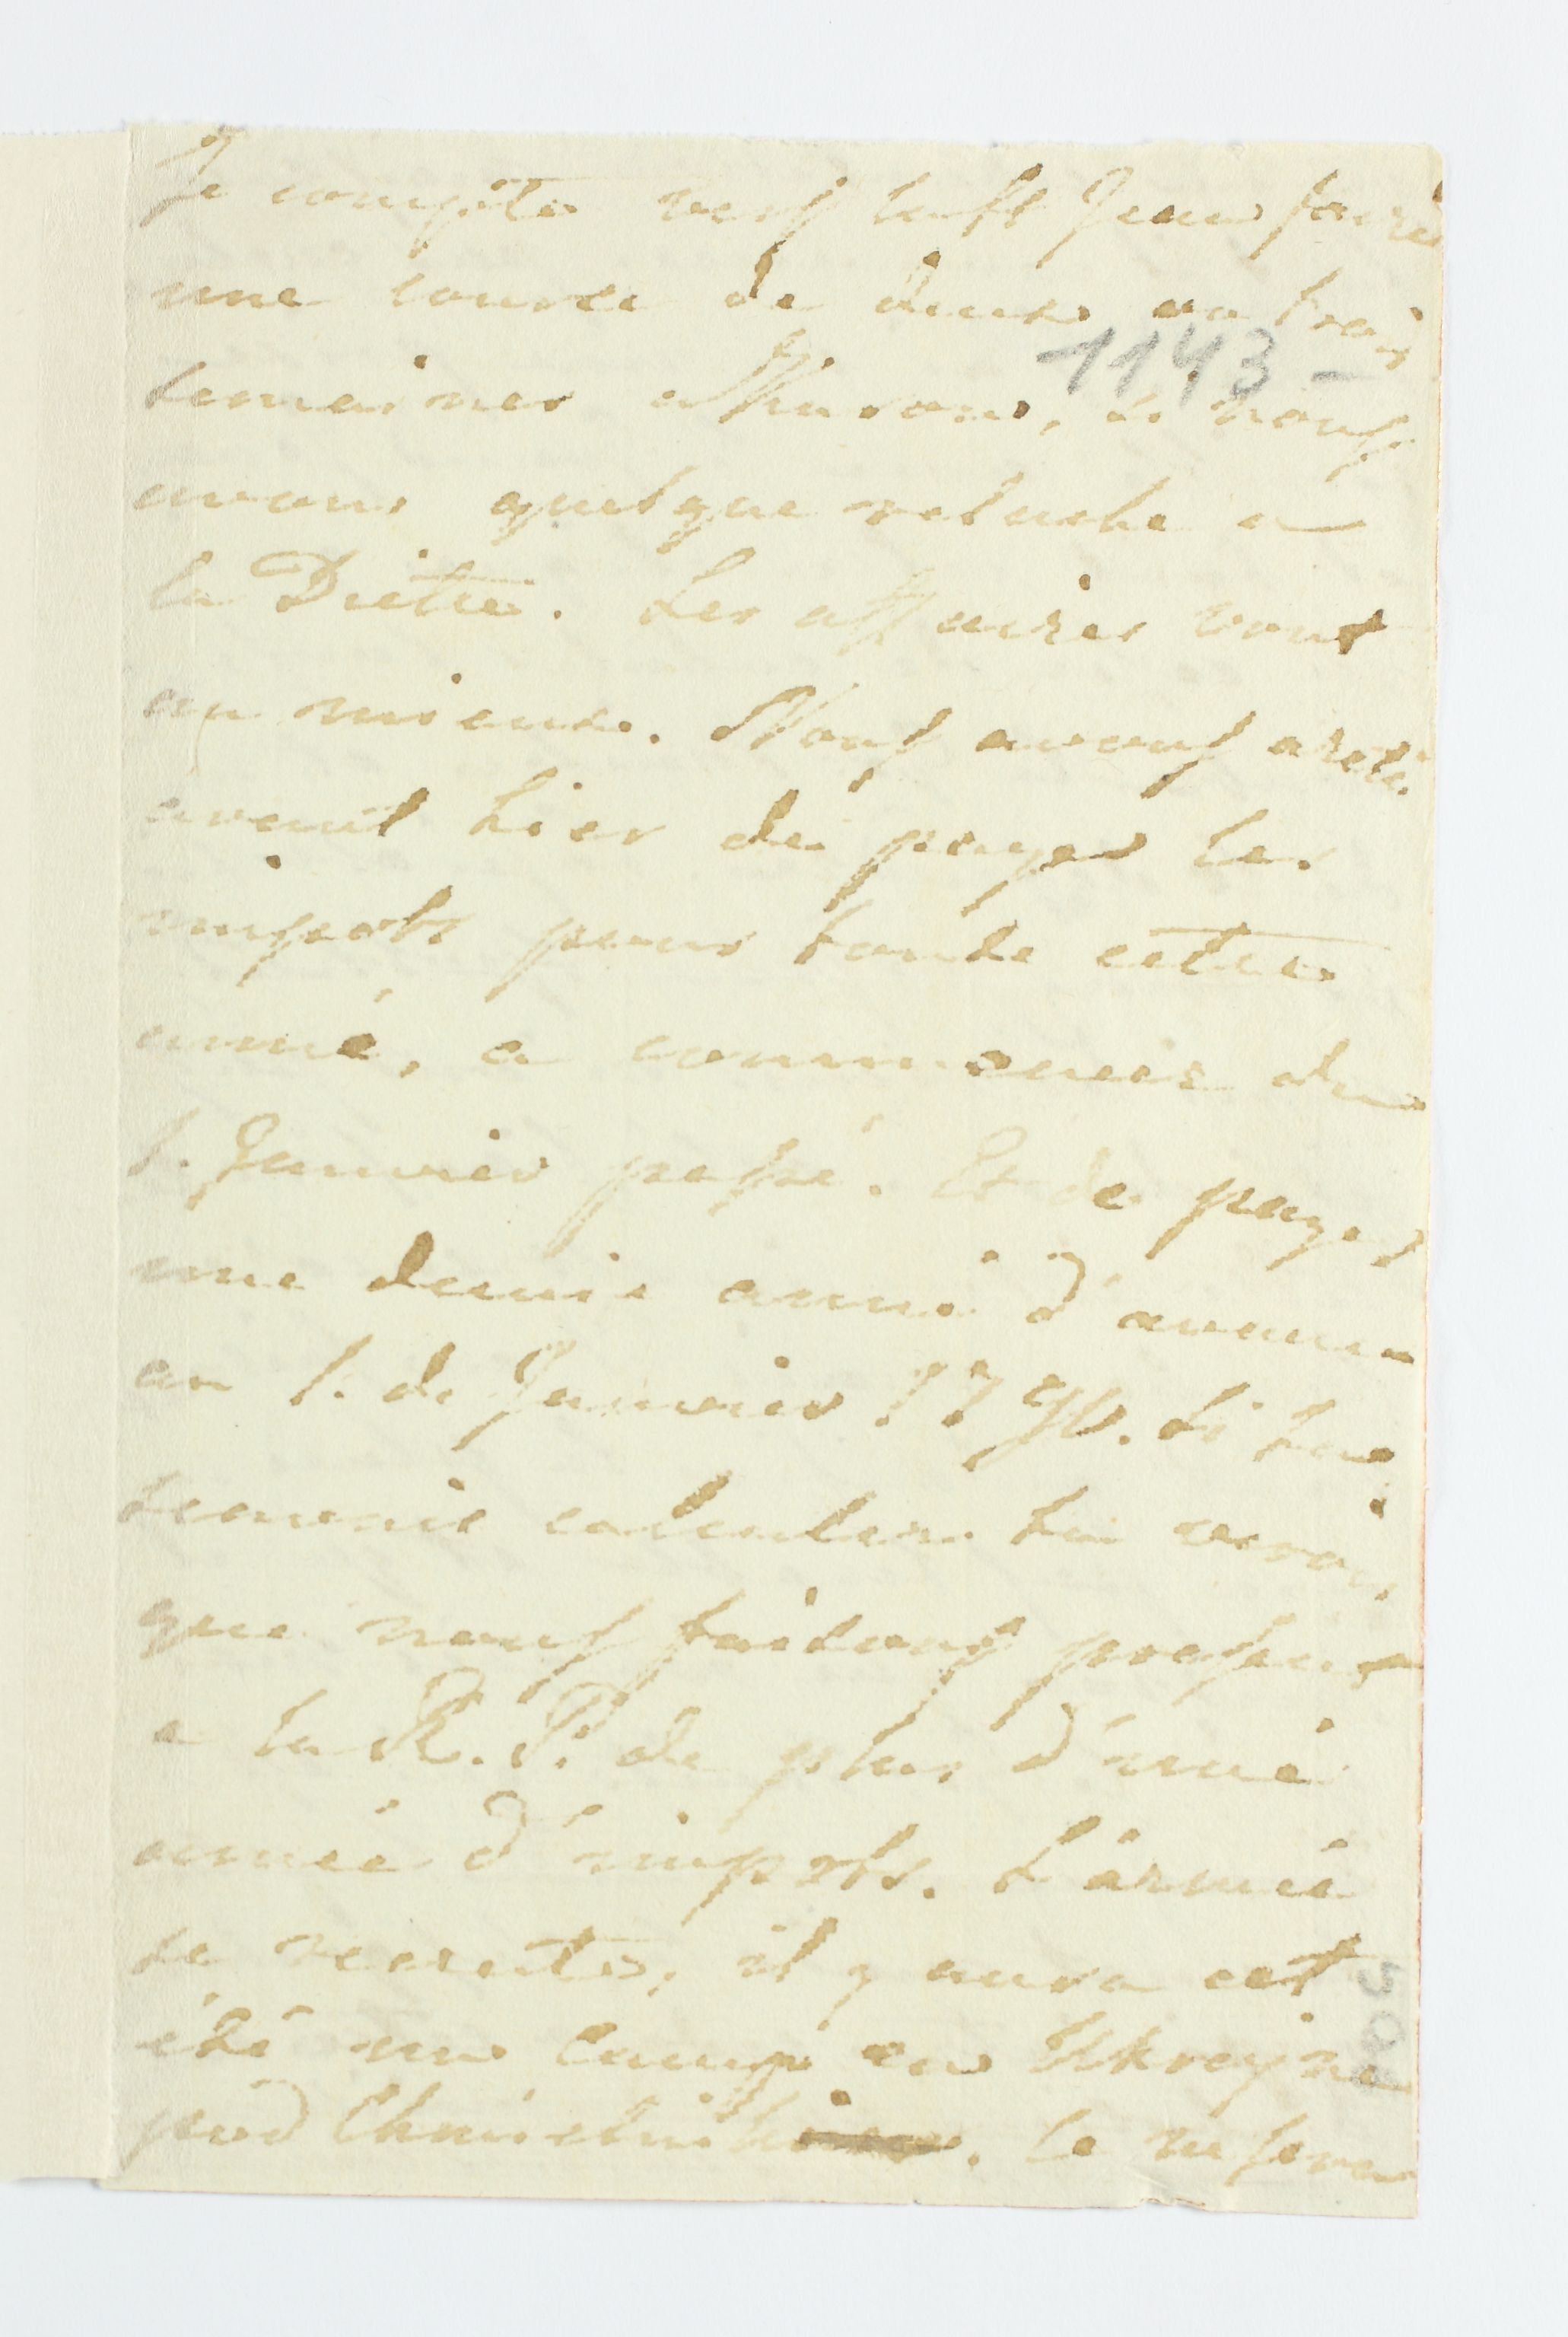 Je compte vers la St Jean faire
une course de deux ou trois
1143 -
semaines environ, si nous
avons quelque relache a
la Diette. Les affaires vont
au mieux. Nous avons areté
avant hier de payer les
impots pour toute cette
anné, a commencer du
1. Janvier passé. Et de payer
une demie anné d'avance
au 1. de Janvier 1790. Si tu
sauois calculer tu verois
que nous faisons present
a la R. P. de plus d'une
anneé d'impots. L'armeé
se recrute, il y aura cet
été un camp en Ukrayne
pod Chmielnikiem. Ce ne sera